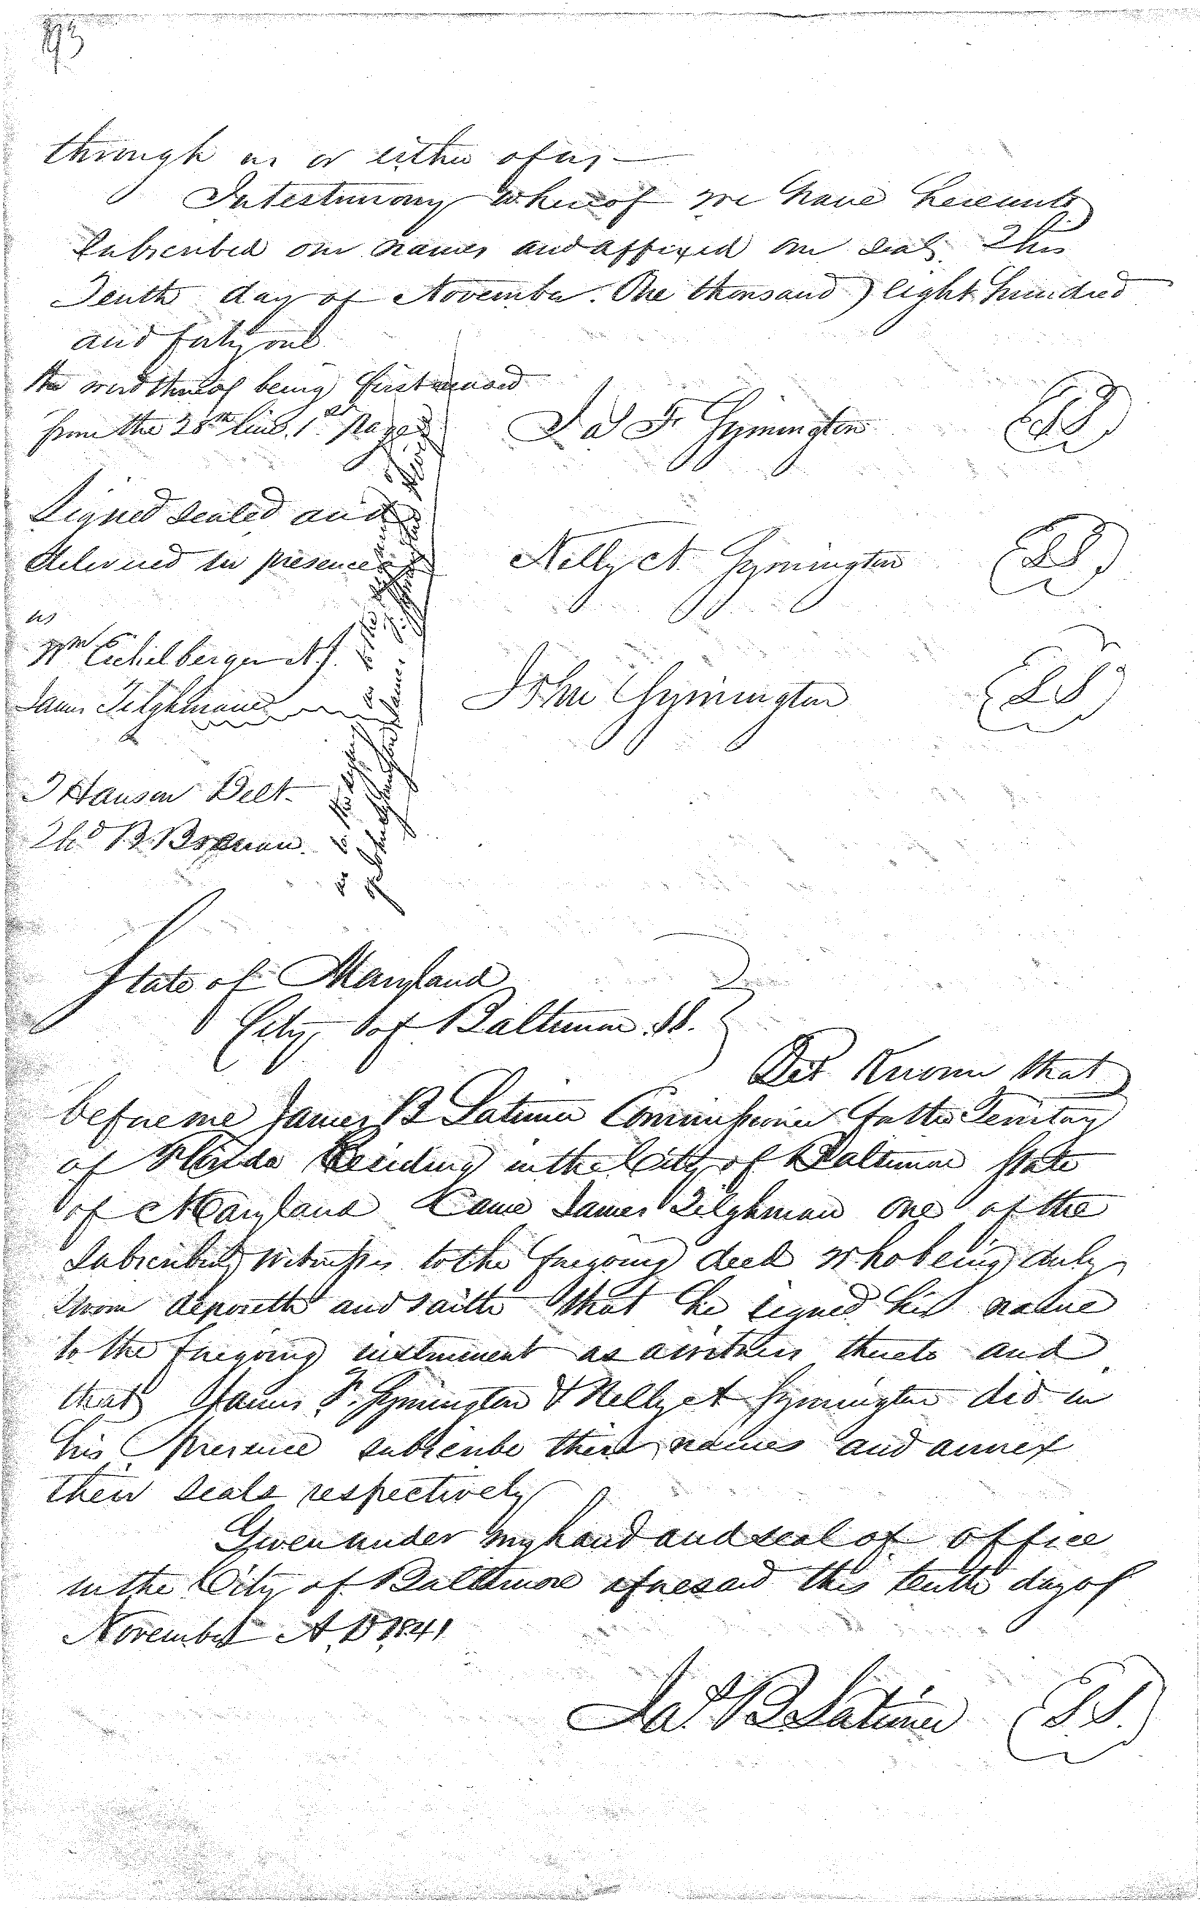 193
through us or either of us —
In testimony whereof we have hereunto
Subscribed our names and affixed our seals This
Tenth day of November. One thousand eight hundred
and forty one
the word thereof being first erased
from the 28th line. 1st Page
Jas F. Gymington LS
Signed sealed and
delivered in presence of
Nelly A. Gymington LS
us
Wm Eichelberger N.J.
James Tilghman
as to the signing of James F. Gymington and Nelly
John Gymington LS
T Hanson Belt.
Thos B
as to the signing
of John Gymington
State of Maryland
City of Baltimore SS.
Be it Known that
before me James B Latimer Commissioner for the Territory
of Florida Residing in the City of Baltimore State
of Maryland Came James Tilghman one of the
Subscribing witnesses to the foregoing deed who being duly
sworn deposeth and saith that he signed his name
to the foregoing instrument as a witness thereto and
that James F. Gymington & Nelly A Gymington did in
his presence subscribe their names and annex
their seals respectively
Given under my hand and seal of office
in the City of Baltimore aforesaid this tenth day of
November A.D. 1841
Jas. B. Latimer LS.